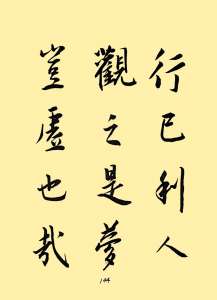 行已利人
觀之是夢
豈虛也哉
144